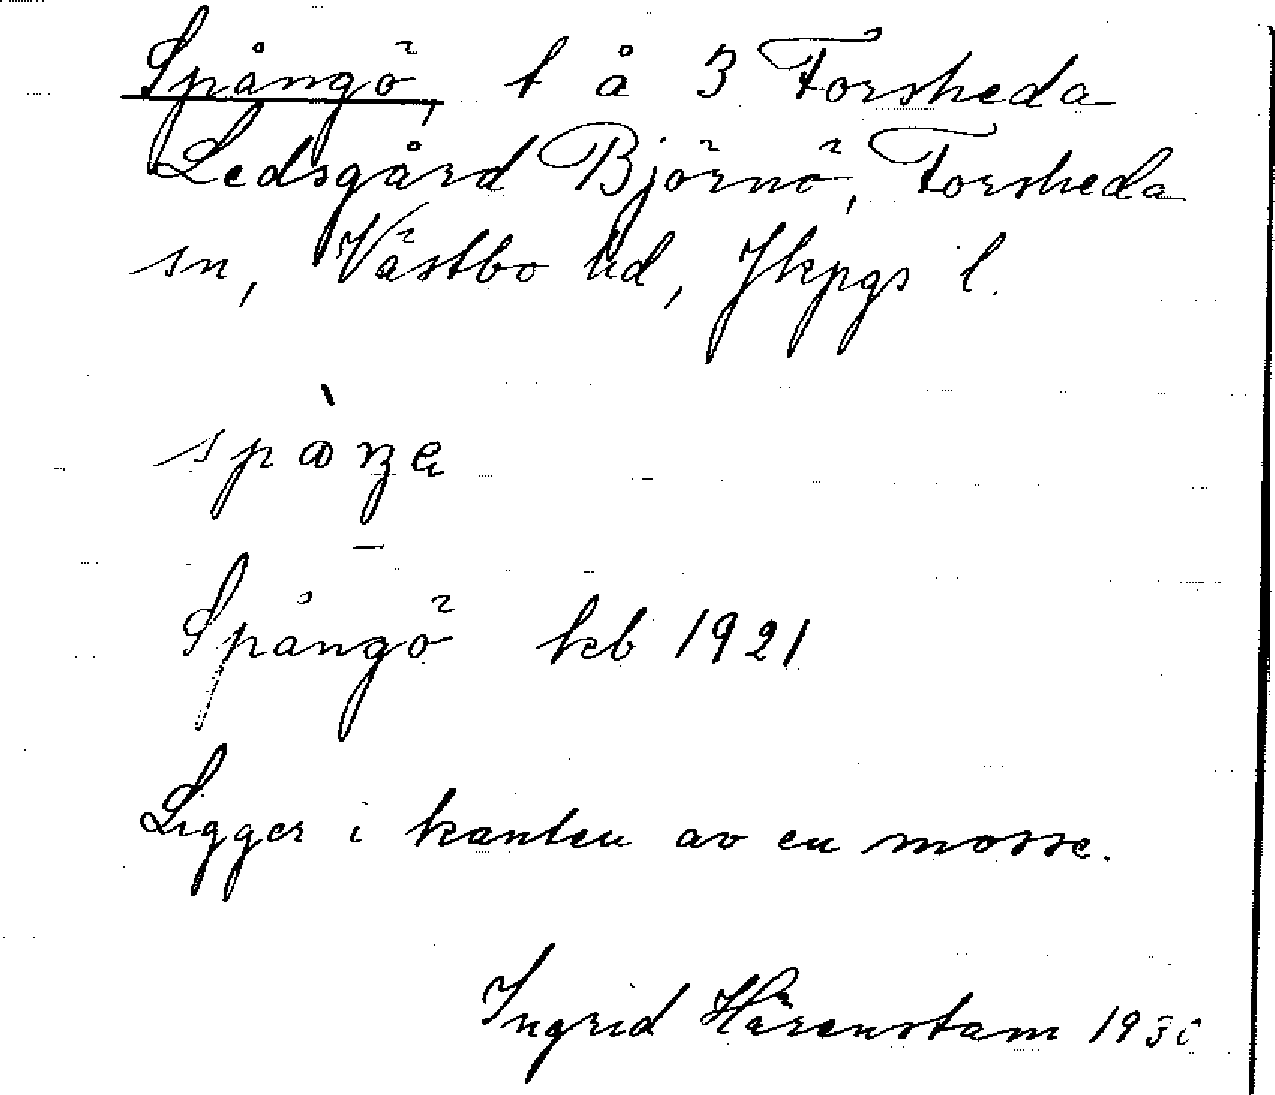 Spångö, t å 3 Forsheda
Ledsgård Björnö, Forsheda
sn, Västbo hd, Jkpgs l.
Spångö kb 1921
Ligger i kanten av en mosse.
Ingrid Härenstam 1930